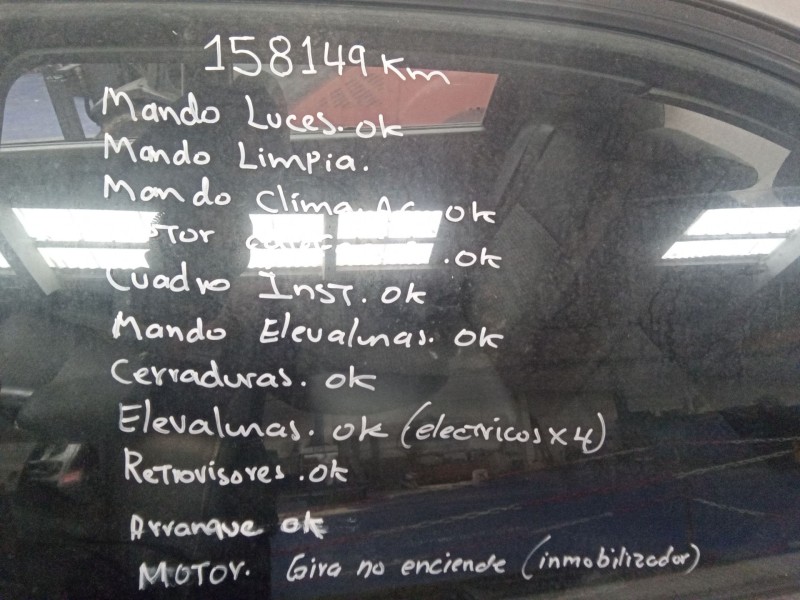 158149 Km
Mando Luces. ok
Mando Limpia.
Mando Clima AC ok
MOTOR . ok
Cuadro INST. ok
Mando Elevalunas. ok
Cerraduras. ok
Elevalunas. ok (electricos x 4)
Retrovisores. ok
Arranque ok
MOTOR. Gira no enciende (inmobilizador)